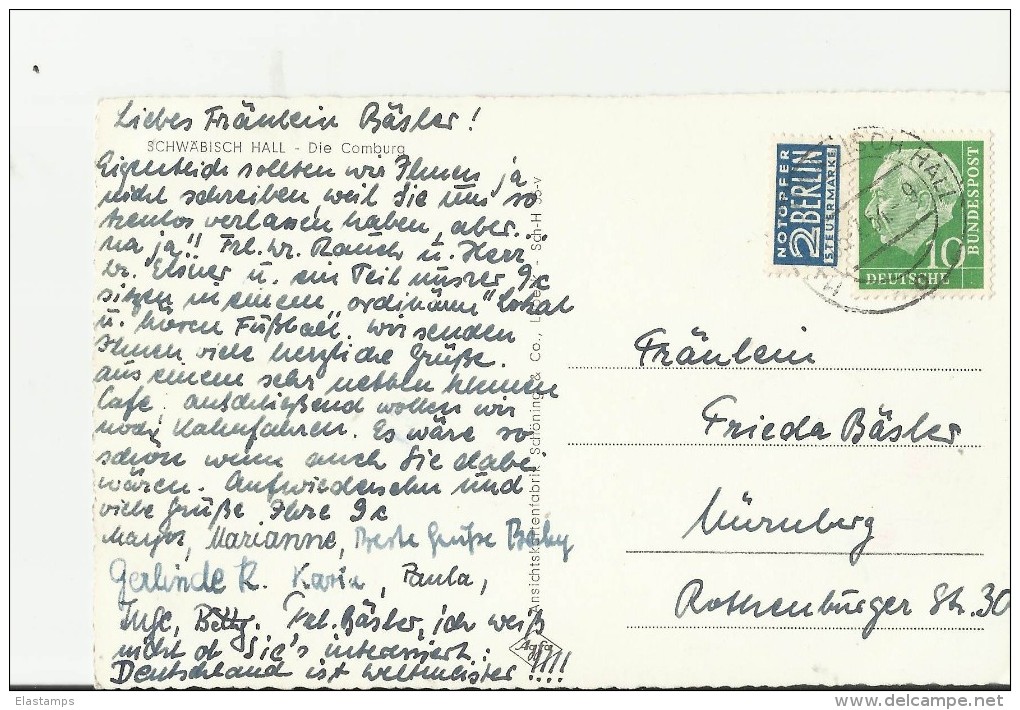 Liebes Fräulein Bäsler!
SCHWÄBISCH HALL - Die Comburg
Eigentlich sollten wir Ihnen ja
nicht schreiben weil Sie uns so
verlassen haben, aber..
na ja!! Frl. Dr. Rauch u. Herr
Dr. Elsner u. ein Teil unsrer 9c
sitzen in einem „ordinären" Lokal
u. hören Fußball, wir senden
Ihnen viele herzliche Grüße.
aus einem sehr netten kleinen
Café, anschließend wollen wir
noch Kahnfahren. Es wäre so
schön wenn auch Sie dabei
wären. Aufwiedersehn und
viele Grüße Ihre 9c
Margot, Marianne, Beste Grüße
Gerlinde R. Karin, Paula,
Inge, Betty. Frl. Bäsler, ich weiß
nicht ob Sie's interessiert:
Deutschland ist Weltmeister!!!!
Ansichtskartenfabrik Schöning & Co., Lübeck - Sch-H 38-v
Agfa
NOTOPFER
2 BERLIN
STEUERMARKE
DEUTSCHE
BUNDESPOST
10
ISCH HALL
Fräulein
Frieda Bäsler
Nürnberg
Rothenburger Str. 30
Elastamps
delcampe.net